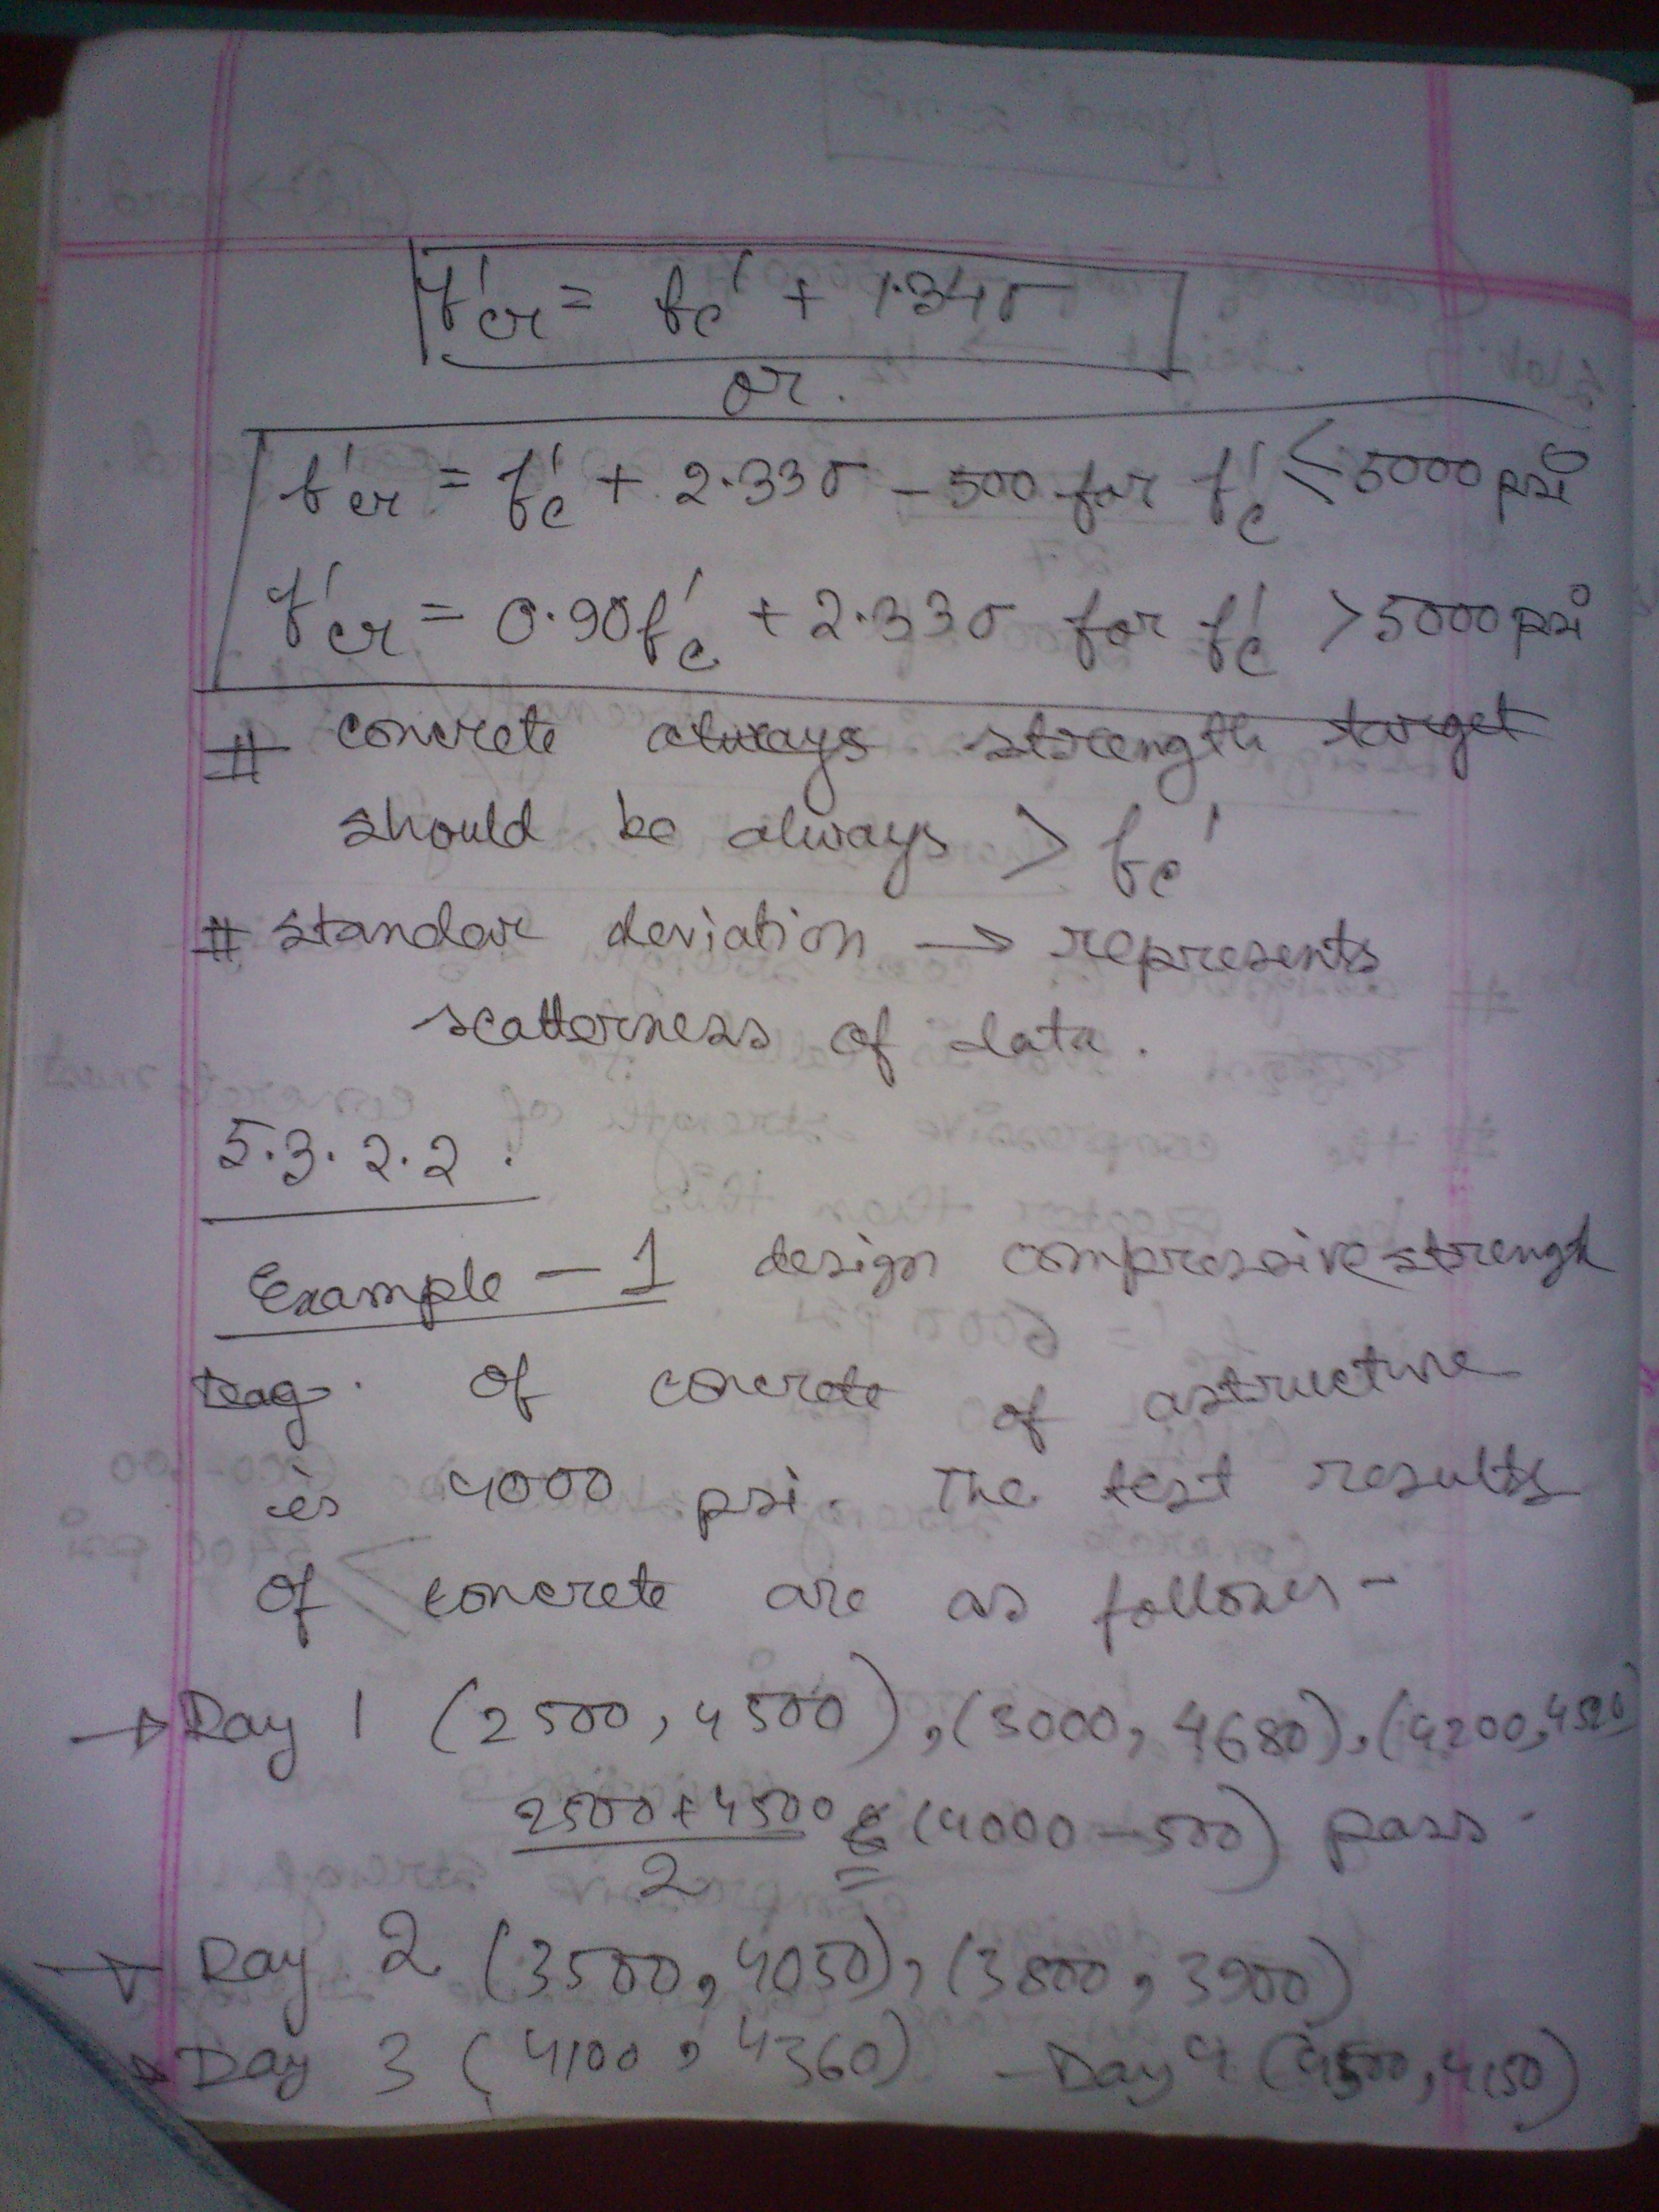 f'cr = fc' + 1.34σ
or.
f'cr = f'c + 2.33σ - 500 for f'c ≤ 5000 psi
f'cr = 0.90f'c + 2.33σ for f'c > 5000 psi
# concrete always strength target
should be always > fc'
# standar deviation → represents
scatterness of data.
5.3.2.2.
Example - 1 design compressive strength
of concrete of a structure
is 4000 psi. The test results
of concrete are as follows -
→ Day 1 (2500, 4500), (3000, 4680), (4200, 4520)
2500+4500 / 2 (4000 - 500) pass.
→ Day 2 (3500, 4050), (3800, 3900)
→ Day 3 (4100, 4360) - Day 4 (4500, 4150)